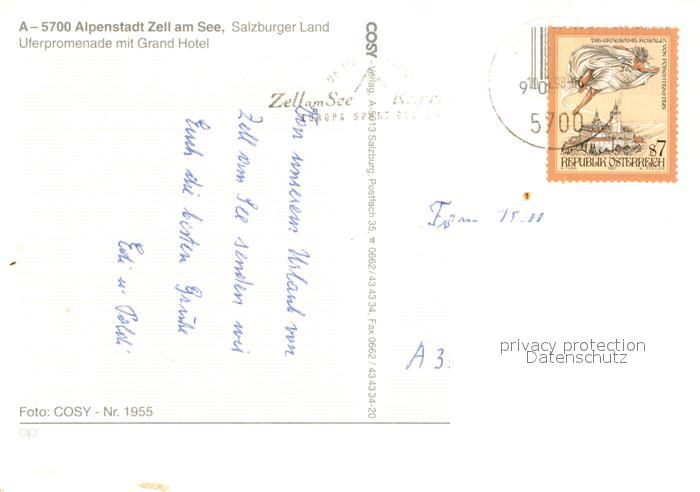 A – 5700 Alpenstadt Zell am See, Salzburger Land
Uferpromenade mit Grand Hotel
Von unserem Urlaub von
Zell am See senden wir
Euch die besten Grüße
Edi u. Poldi
Foto: COSY - Nr. 1955
op
COSY - Verlag, A-5013 Salzburg, Postfach 35, ☎ 0662/43 43 34, Fax 0662/43 43 34-20
Zell am See
EUROPA SPORT
5700
DIE GRAUSAME ROSALIA
VON FORCHTENSTEIN
S7
REPUBLIK ÖSTERREICH
1997
Fam
A 3
privacy protection
Datenschutz